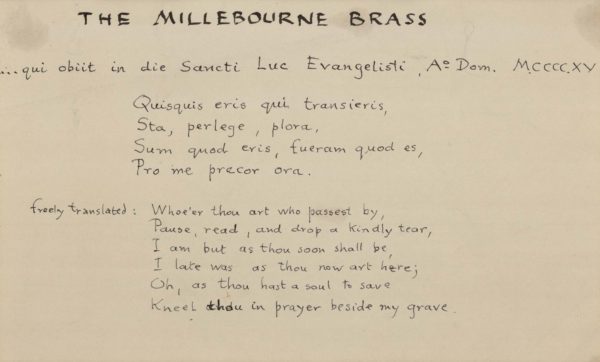 THE MILLEBOURNE BRASS
...qui obiit in die Sancti Luc Evangelisti, Aº Dom. MCCCC.XV
Quisquis eris qui transieris,
Sta, perlege, plora,
Sum quod eris, fueram quod es,
Pro me precor ora.
freely translated: Whoe'er thou art who passest by,
Pause, read, and drop a kindly tear,
I am but as thou soon shall be,
I late was as thou now art here;
Oh, as thou hast a soul to save
Kneel thou in prayer beside my grave.